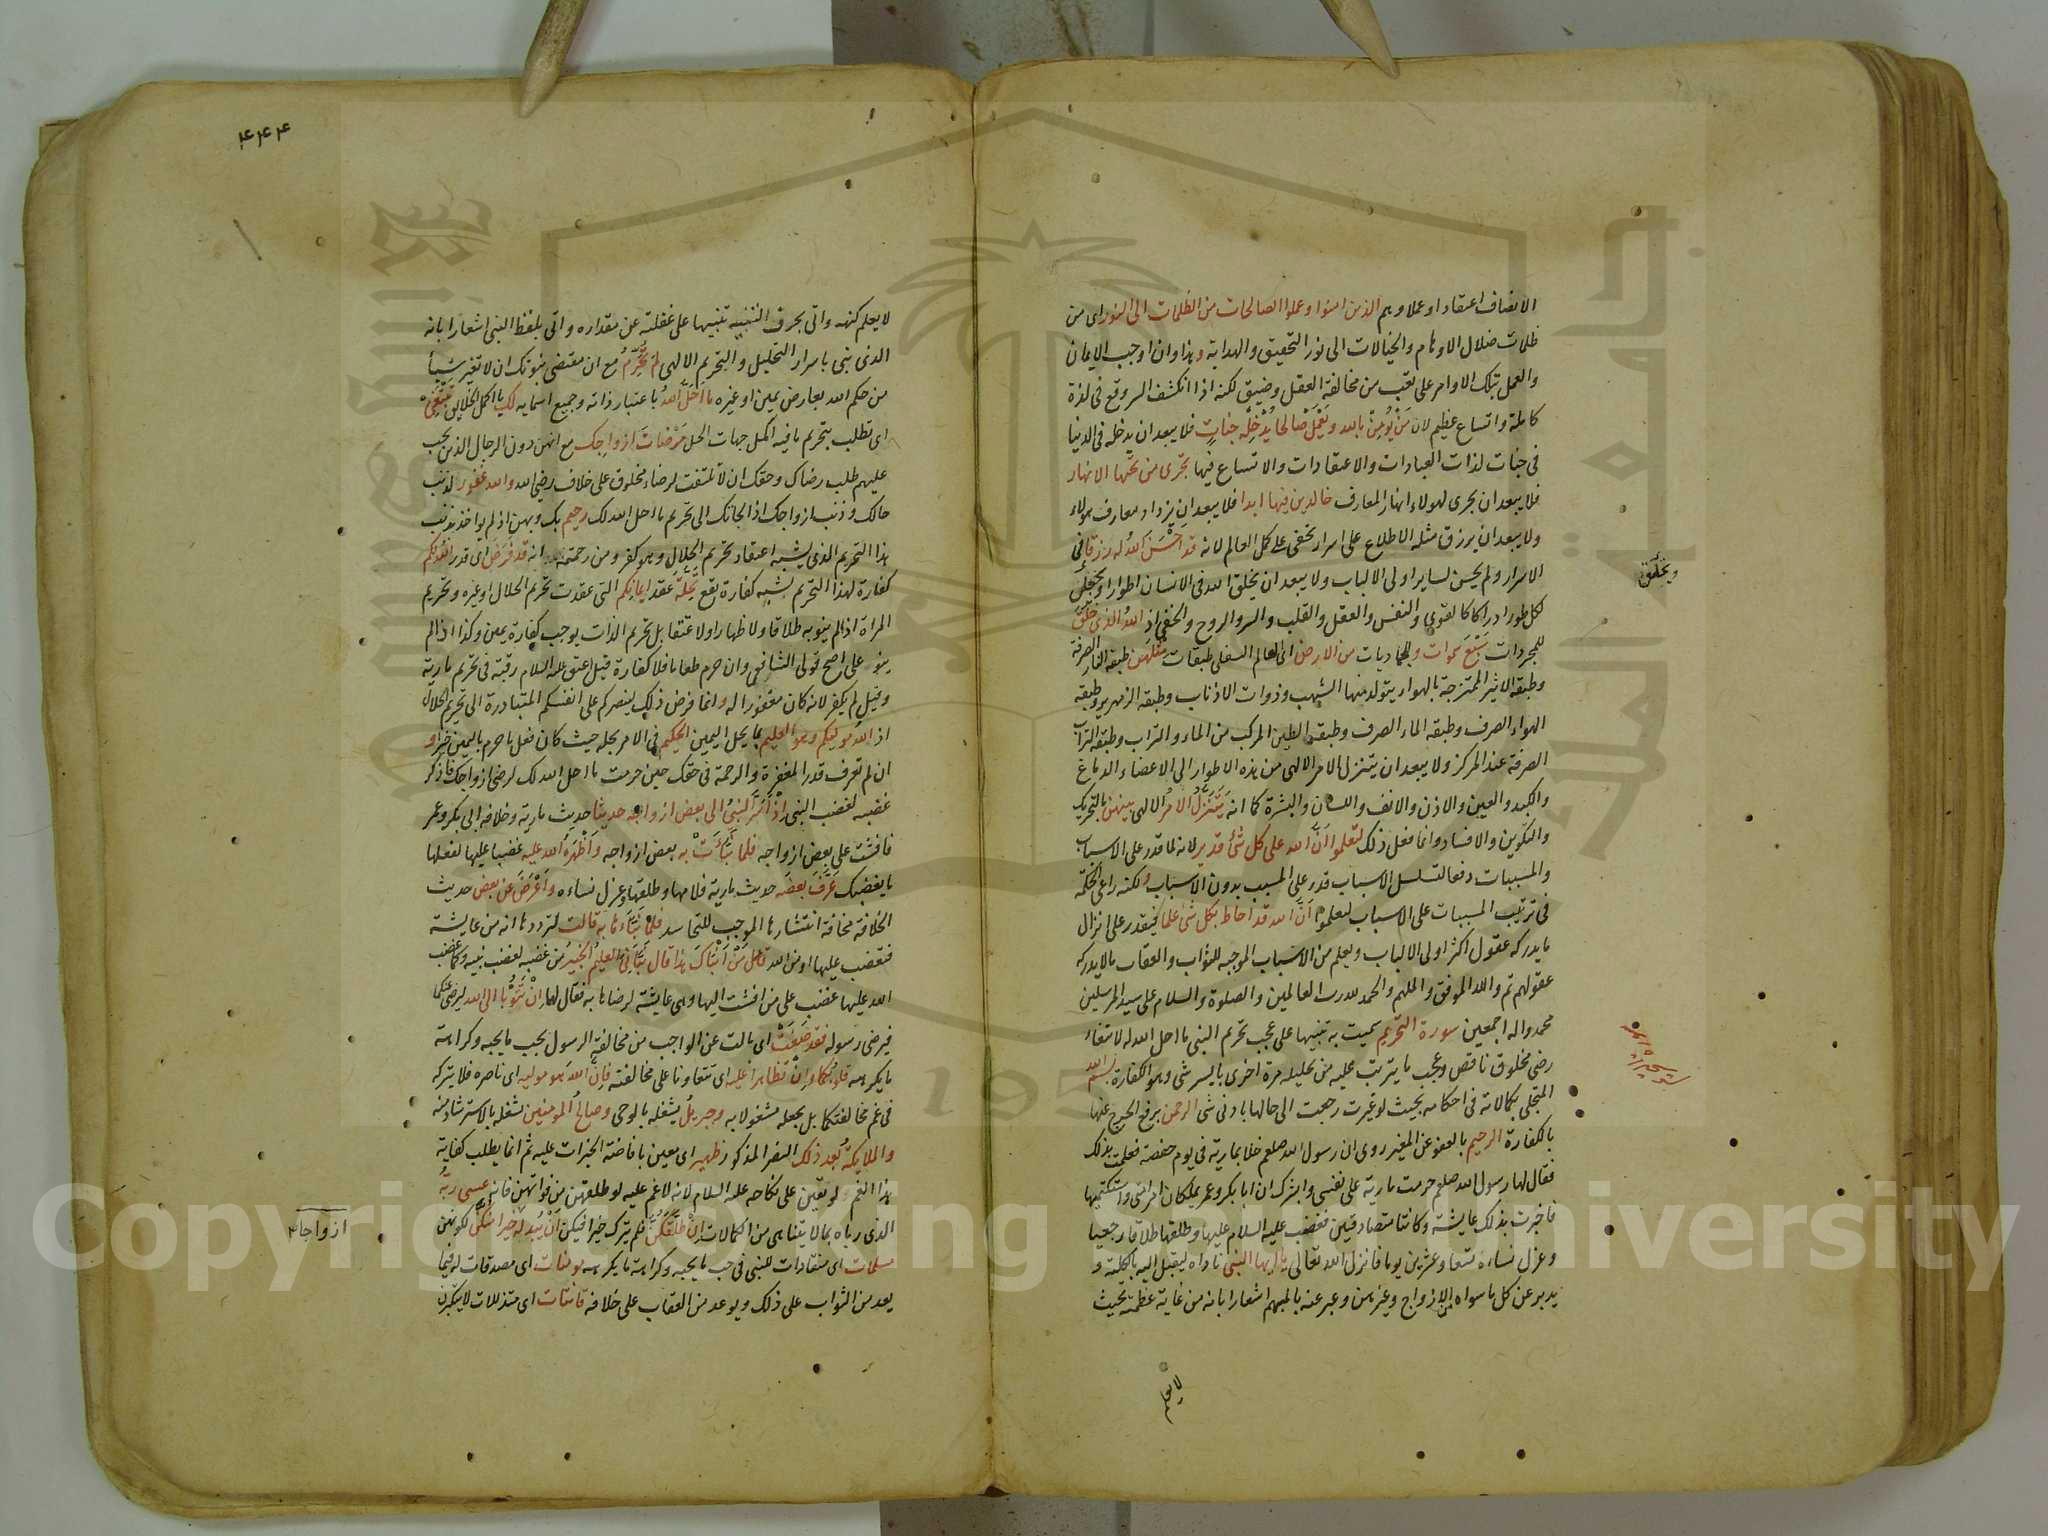 الانصاف اعتقادا وعملا وهم الذين امنوا وعملوا الصالحات من الظلمات الى النور اى من
ظلمات ضلال الاوهام والخيالات الى نور التحقيق والهداية وهذا وان اوجب الايمان
والعمل بتلك الاوامر على تعب من مخالفة العقل وضيق لكنه اذا انكشف السر وقع فى لذة
كاملة واتساع عظيم لان من يؤمن بالله ويعمل صالحا يدخله جنات فلا يبعد ان يدخله فى الدنيا
فى جنات لذات العبادات والاعتقادات والاتساع فيها تجرى من تحتها الانهار
فلا يبعد ان يجرى لهولاء انهار المعارف خالدين فيها ابدا فلا يبعد ان يزداد معارف هولاء
ولا يبعد ان يرزق مثله الاطلاع على اسرار تخفى على كل العالم لانه قد احسن الله له رزقا فى
الاسرار ولم يحسن لساير اولى الالباب ولا يبعد ان يخلق الله فى الانسان اطوارا ويجعل
لكل طور ادراكا كالقوى والنفس والعقل والقلب والسر والروح والخفى اذ الله الذى خلق
للمجردات سبع سموات وللماديات من الارض اى العالم السفلى طبقات مثلهن طبقة النار الصرفة
وطبقة الاثير الممتزجة بالهواء يتولد منها الشهب وذوات الاذناب وطبقة الزمهرير وطبقة
الهواء الصرف وطبقة الماء الصرف وطبقة الطين المركب من الماء والتراب وطبقة التراب
الصرفة عند المركز ولا يبعد ان يتنزل الامر الالهى من هذه الاطوار الى الاعضاء الدماغ
والكبد والعين والاذن والانف واللسان والبشرة كما انه يتنزل الامر الالهى بينهن بالتحريك
والتكوين والافساد وانما فعل ذلك لتعلموا ان الله على كل شئ قدير لانه لما قدر على الاسباب
والمسببات دفعا لتسلسل الاسباب قدر على المسبب بدون الاسباب ولكنه راعى الحكمة
فى ترتيب المسببات على الاسباب لتعلموا ان الله قد احاط بكل شئ علما فيقدر على انزال
ما يدركه عقول اكثر اولى الالباب ويعلم من الاسباب الموجبة للثواب والعقاب ما لا يدركه
عقولهم تم والله الموفق والملهم والحمد لله رب العالمين والصلوة والسلام على سيد المرسلين
محمد واله اجمعين سورة التحريم سميت به تنبيها على عجب تحريم النبى ما احل الله له لابتغاء
رضى مخلوق ناقص وعجب ما يترتب عليه من تحليله مرة اخرى بايسر شئ وهو الكفارة بسم الله
المتجلى بكمالاته فى احكامه بحيث لو غيرت رجعت الى حالها بادنى شئ الرحمن برفع الحرج عنها
بالكفارة الرحيم بالعفو عن المغير روى ان رسول الله صلعم خلا بمارية فى يوم حفصة فعلمت بذلك
فقال لها رسول الله صلعم حرمت مارية على نفسى وابشرك ان ابا بكر وعمر يملكان امر امتى واستكتمها
فاخبرت بذلك عايشة وكانتا متصادقتين فغضب عليه السلام عليها وطلقها طلاقا رجعيا
وعزل نساءه تسعا وعشرين يوما فانزل الله تعالى يا ايها النبى ناداه ليقبل اليه بالكلية و
يدبر عن كل ما سواه من الازواج وغيرهن وعبر عنه بالمبهم اشعارا بانه من غاية عظمته بحيث
لا يعلم
ويخلق
سورة التحريم
٤٤٤
لا يعلم كنهه واتى بحرف التنبيه تنبيها على غفلته عن مقداره واتى بلفظ النبى اشعارا بانه
الذى نبئ باسرار التحليل والتحريم الالهى لم تحرم مع ان مقتضى نبوتك ان لا تغير شيأ
من حكم الله بعارض يمين او غيره ما احل الله باعتبار ذاته وجميع اسمايه لك يا اكمل الخلايق تبتغى
اى تطلب بتحريم ما فيه اكمل جهات الحل مرضات ازواجك مع انهن دون الرجال الذين يجب
عليهم طلب رضاك وحقك ان لا تلتفت لرضاء مخلوق على خلاف رضى الله والله غفور لذنب
حالك وذنب ازواجك اذ الجأتك الى تحريم ما احل الله لك رحيم بك وبهن اذ لم يواخذ بذنب
هذا التحريم الذى يشبه اعتقاد تحريم الحلال وهو كفر ومن رحمته انه قد فرض اى قدر الله لكم
كفارة لهذا التحريم يشبه كفارة يقع تحلة عقد ايمانكم التى عقدت تحريم الحلال او غيره وتحريم
المراة اذا لم ينو به طلاقا ولا ظهارا ولا عتقا بل تحريم الذات يوجب كفارة يمين وكذا اذا لم
ينو على اصح قولى الشافعى وان حرم طعاما فلا كفارة قيل اعتق عليه السلام رقبة فى تحريم مارية
وقيل لم يكفر لانه كان مغفورا له وانما فرض ذلك لينصركم على انفسكم المتبادرة الى تحريم الحلال
اذ الله موليكم وهو العليم بما يحل اليمين الحكيم فى الامر بحله حيث كان فعل ما حرم باليمين خيرا و
ان لم تعرف قدر المغفرة والرحمة فى حقك حين حرمت ما احل الله لك لرضى ازواجك فاذكر
غضبه لغضب النبى اذ اسر النبى الى بعض ازواجه حديثا حديث مارية وخلافة ابى بكر وعمر
فافشت على بعض ازواجه فلما نبأت به بعض ازواجه واظهره الله عليه غضبا عليها لفعلها
ما يغضبك عرف بعضه حديث مارية فلامها وطلقها وعزل نساءه واعرض عن بعض حديث
الخلافة مخافة انتشارها الموجب للتحاسد فلما نبأها به قالت لترددها انه من عايشة
فتغضب عليها او من الله قالت من انبأك هذا قال نبأنى العليم الخبير من غضبه لغضب نبيه وكما غضب
الله عليها غضب على من افشت اليها وهى عايشة لرضاها به فقال لهما ان تتوبا الى الله ليرضى عنكما
فيرضى رسوله فقد صغت اى مالت عن الواجب من مخالفة الرسول بحب ما يحبه وكراهة
ما يكرهه قلوبكما وان تظاهرا عليه اى تتعاونا على مخالفته فان الله هو موليه اى ناصره فلا يتركه
فى غم مخالفتكما بل يجعله مشغولا به وجبريل يشغله بالوحى وصالح المومنين تشغله بالاسترشاد منه
والملايكة بعد ذلك النصر المذكور ظهير اى معين بافاضة الخيرات عليه ثم انما يطلب كفاية
هذا الغم لو بقين على نكاحه عليه السلام لانه لا غم عليه لو طلقهن من فواتهن فانه عسى ربه
الذى رباه بما لا يتناهى من الكمالات ان طلقكن فلم يترك خيرا فيكن ان يبدله خيرا منكن لكونهن
مسلمات اى منقادات للنبى فى حب ما يحبه وكراهة ما يكرهه مومنات اى مصدقات له فيما
يعد من الثواب على ذلك ويوعد من العقاب على خلافه قانتات اى متذللات لا يتكبرن
ازواجا